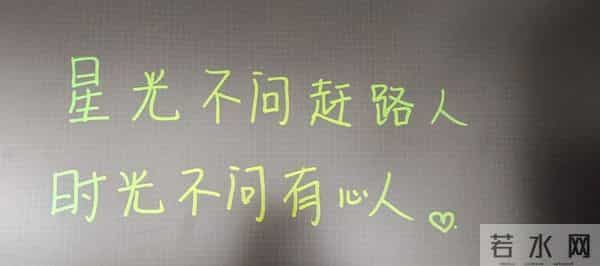 星光不问赶路人
时光不问有心人♡.
若水网